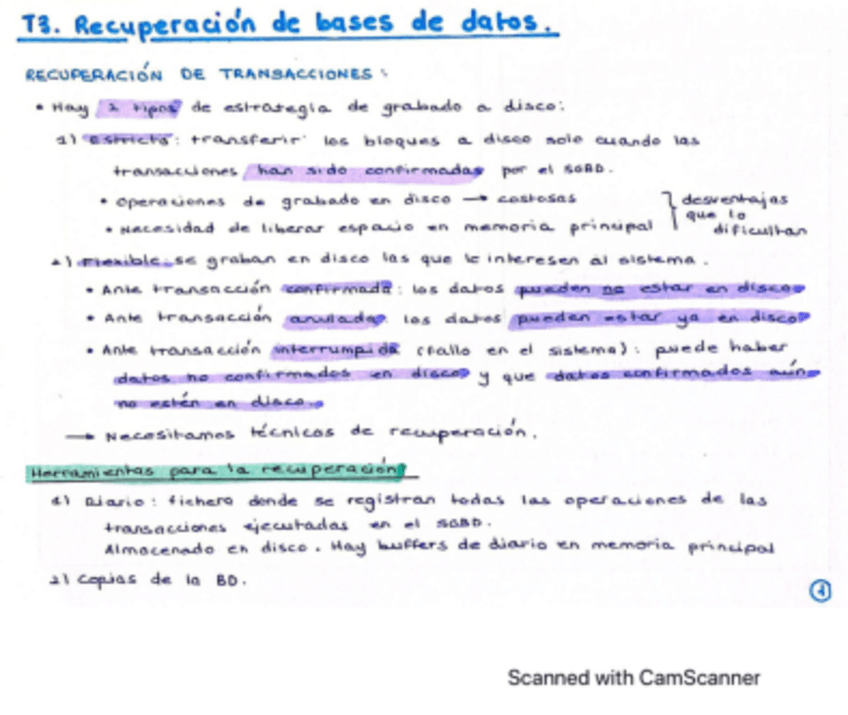 T3. Recuperación de bases de datos.
RECUPERACIÓN DE TRANSACCIONES:
• Hay 2 tipos de estrategia de grabado a disco:
1) Estricta: transferir los bloques a disco solo cuando las
transacciones han sido confirmadas por el SGBD.
• Operaciones de grabado en disco → costosas
• Necesidad de liberar espacio en memoria principal
desventajas
que lo
dificultan
2) Flexible: se graban en disco las que le interesen al sistema.
• Ante transacción confirmada: los datos pueden no estar en disco
• Ante transacción anulada: los datos pueden estar ya en disco
• Ante transacción interrumpida (fallo en el sistema): puede haber
datos no confirmados en disco y que datos confirmados aún
no estén en disco.
→ Necesitamos técnicas de recuperación.
Herramientas para la recuperación
1) Diario: fichero donde se registran todas las operaciones de las
transacciones ejecutadas en el SGBD.
Almacenado en disco. Hay buffers de diario en memoria principal
2) Copias de la BD.
1
Scanned with CamScanner